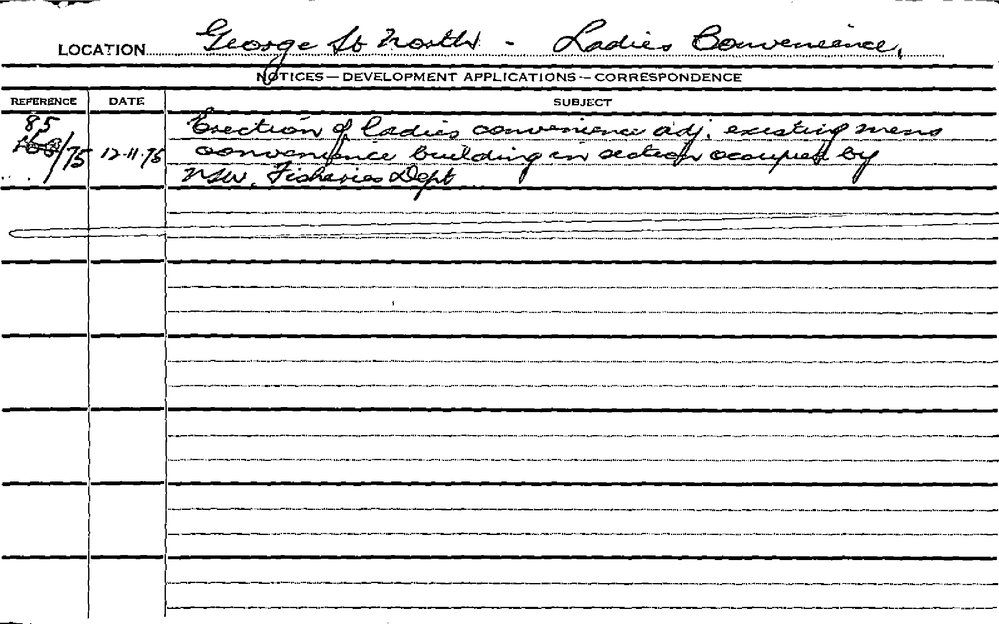 LOCATION George St North - Ladies Convenience.
NOTICES — DEVELOPMENT APPLICATIONS — CORRESPONDENCE
REFERENCE DATE SUBJECT
85 Erection of ladies convenience adj. existing mens
/75 12-11-75 convenience building in section occupied by
NSW. Fisheries Dept